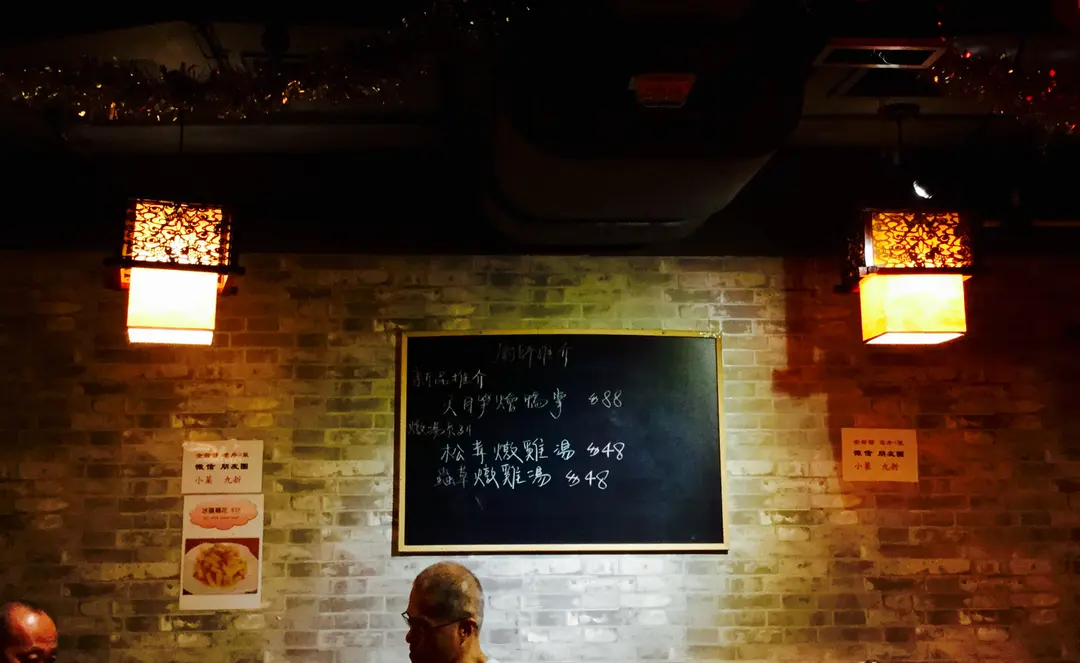 廚師推介
新品推介
天目筍燒鴨掌 $88
燉湯系列
松茸燉雞湯 $48
蟲草燉雞湯 $48
微信 朋友圈
小菜 九折
微信 朋友圈
小菜 九折